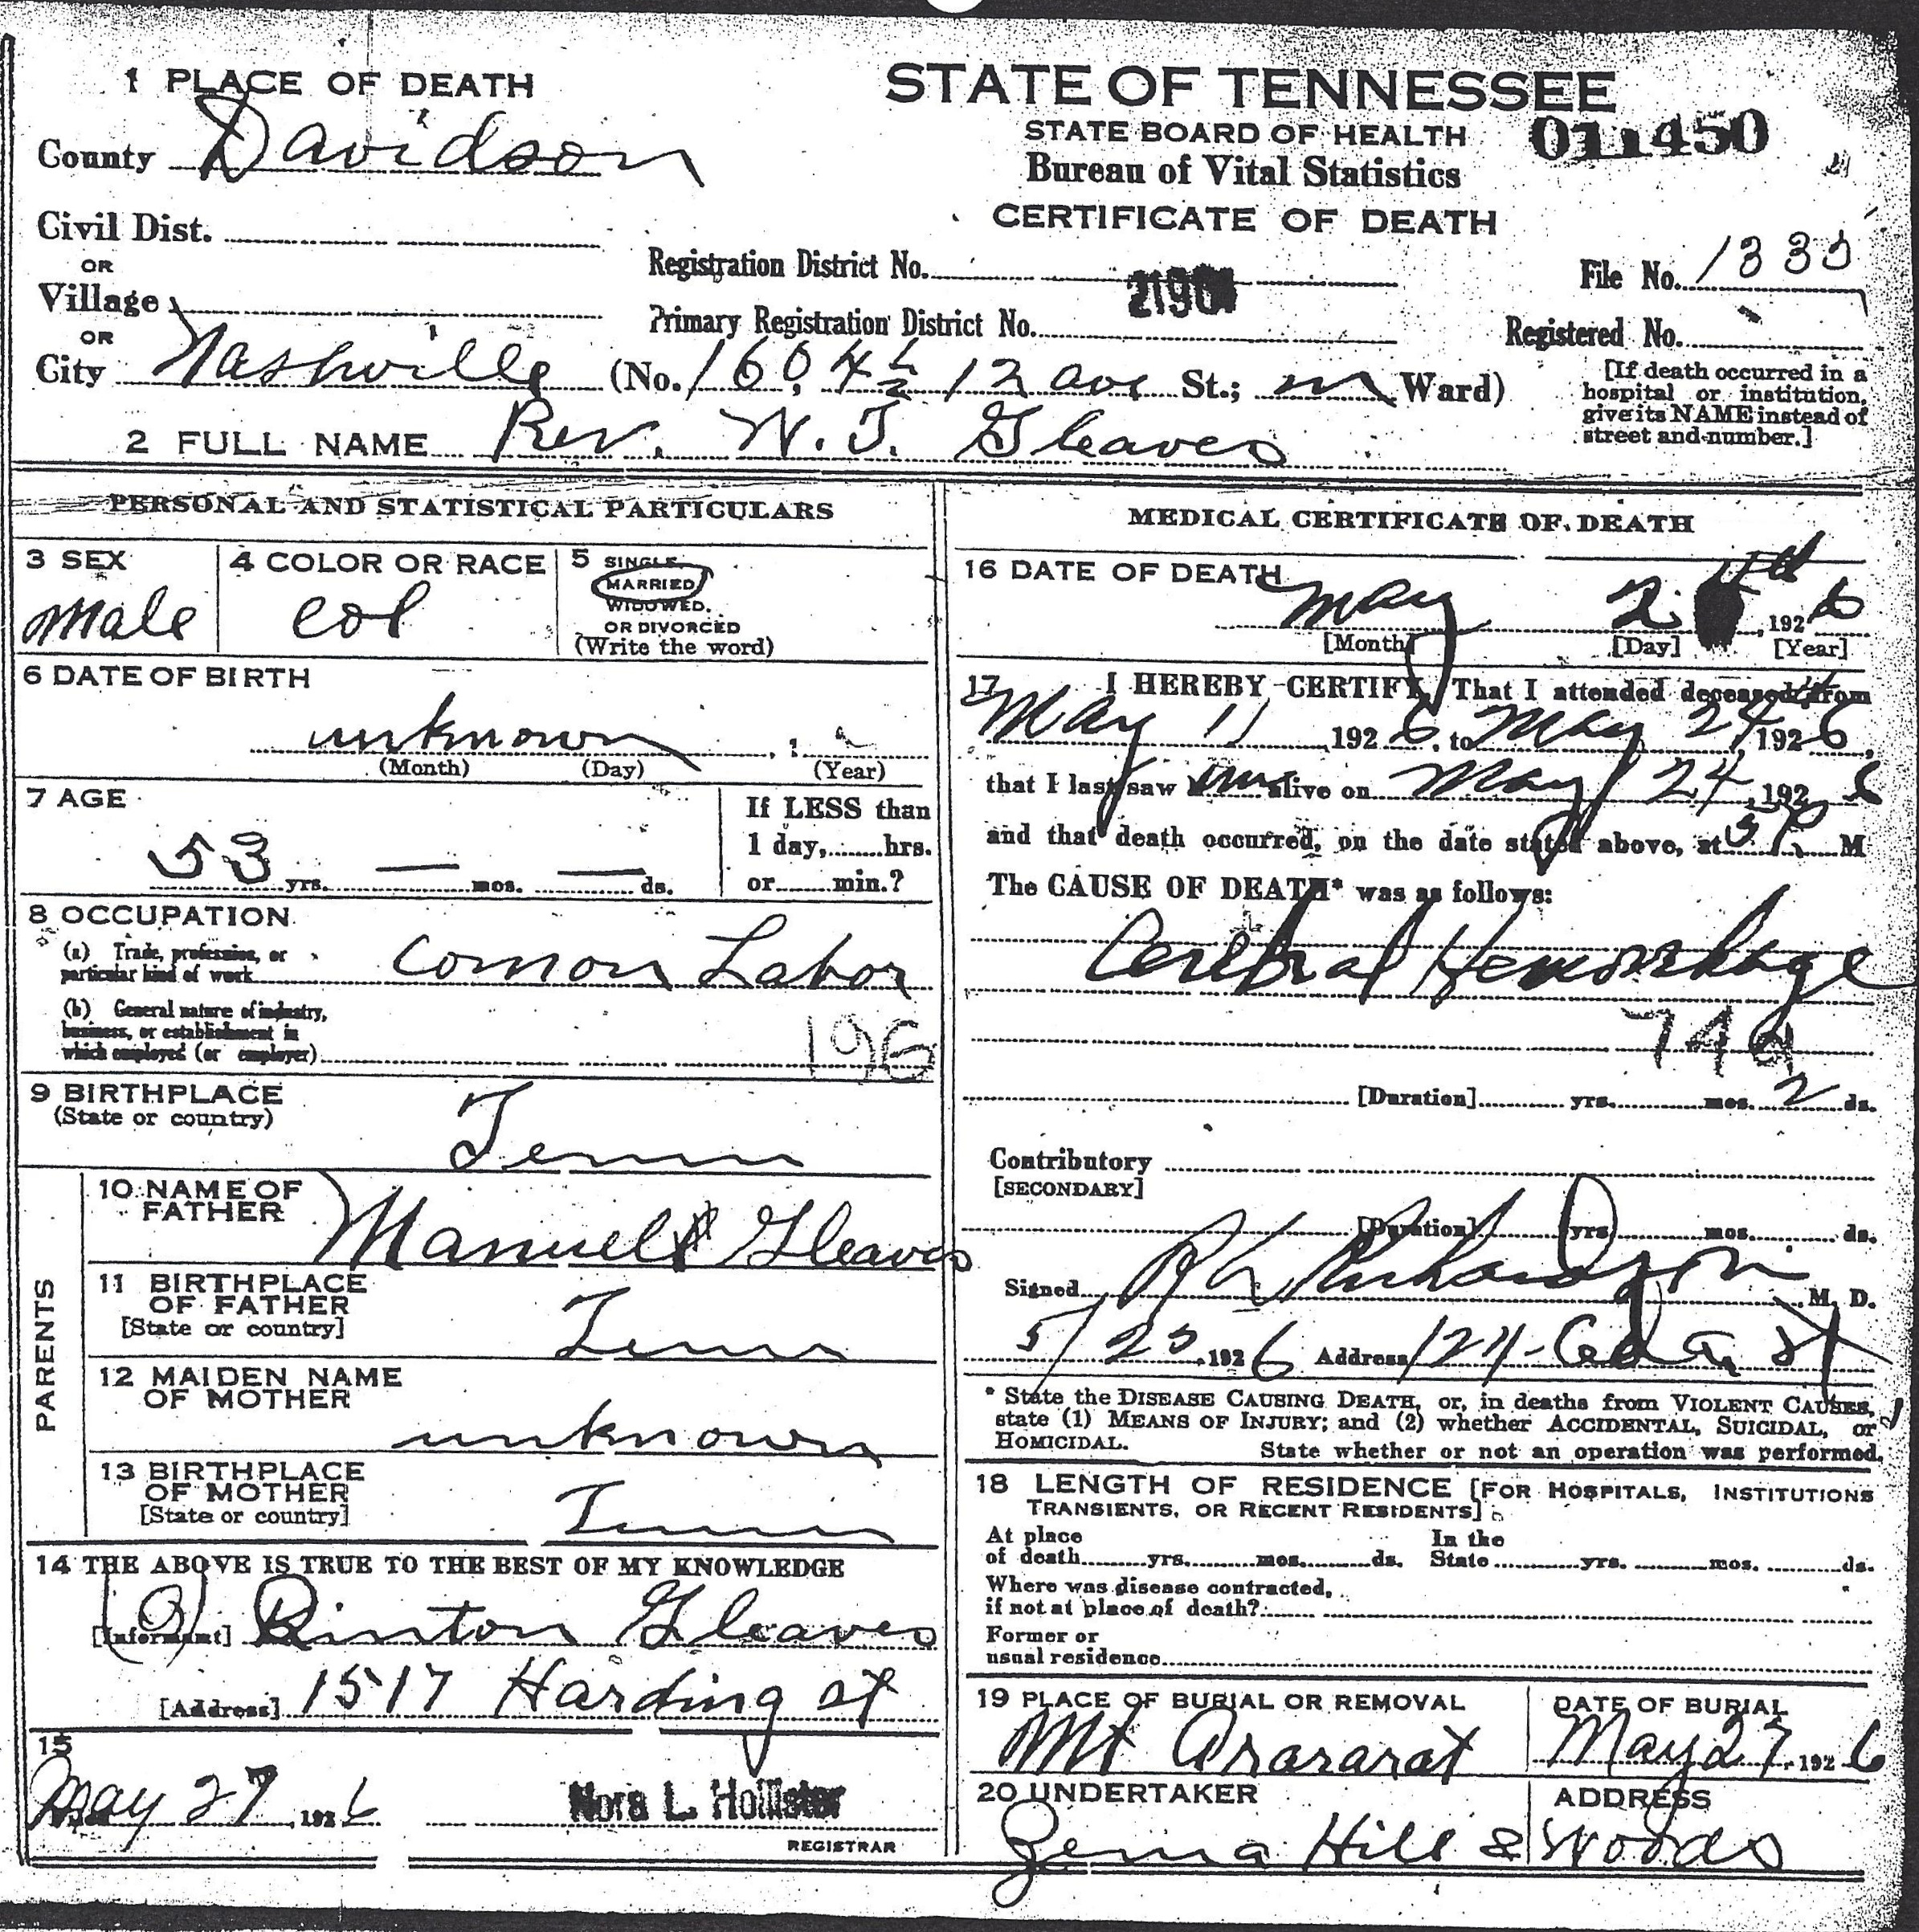 1 PLACE OF DEATH
County Davidson
Civil Dist.
OR
Village
OR
City Nashville (No. 1604½ 12 ave St.; Ward)
STATE OF TENNESSEE
STATE BOARD OF HEALTH
011450
Bureau of Vital Statistics
CERTIFICATE OF DEATH
Registration District No.
Primary Registration District No.
File No.
Registered No.
[If death occurred in a
hospital or institution,
give its NAME instead of
street and number.]
2 FULL NAME Rev. W. T. Gleaves
PERSONAL AND STATISTICAL PARTICULARS
3 SEX
Male
4 COLOR OR RACE
Col
5 SINGLE,
MARRIED,
WIDOWED,
OR DIVORCED
(Write the word)
6 DATE OF BIRTH
unknown
(Month) (Day) (Year)
7 AGE
53 yrs. — mos. — ds.
If LESS than
1 day, hrs.
or min.?
8 OCCUPATION
(a) Trade, profession, or
particular kind of work Comon Labor
(b) General nature of industry,
business, or establishment in
which employed (or employer)
196
9 BIRTHPLACE
(State or country)
Tenn
PARENTS
10 NAME OF
FATHER
Manuel Gleaves
11 BIRTHPLACE
OF FATHER
[State or country]
Tenn
12 MAIDEN NAME
OF MOTHER
unknown
13 BIRTHPLACE
OF MOTHER
[State or country]
Tenn
14 THE ABOVE IS TRUE TO THE BEST OF MY KNOWLEDGE
[Informant] Gleaves
[Address] 1517 Harding st
15
May 27, 1926
Nora L. Hollister
REGISTRAR
MEDICAL CERTIFICATE OF DEATH
16 DATE OF DEATH
May 24th, 1926
[Month] [Day] [Year]
17 I HEREBY CERTIFY, That I attended deceased from
May 11 1926, to May 24, 1926,
that I last saw him alive on May 24, 1926
and that death occurred, on the date stated above, at 5 P. M
The CAUSE OF DEATH* was as follows:
Cerebral Hemorrhage
74a
[Duration] yrs. mos. 2 ds.
Contributory
[SECONDARY]
[Duration] yrs. mos. ds.
Signed Richardson M. D.
5/25, 1926 Address Cedar St
* State the DISEASE CAUSING DEATH, or, in deaths from VIOLENT CAUSES,
state (1) MEANS OF INJURY; and (2) whether ACCIDENTAL, SUICIDAL, or
HOMICIDAL. State whether or not an operation was performed.
18 LENGTH OF RESIDENCE [FOR HOSPITALS, INSTITUTIONS
TRANSIENTS, OR RECENT RESIDENTS]
At place In the
of death yrs. mos. ds. State yrs. mos. ds.
Where was disease contracted,
if not at place of death?
Former or
usual residence
19 PLACE OF BURIAL OR REMOVAL
Mt Arararat
DATE OF BURIAL
May 27, 1926
20 UNDERTAKER
ADDRESS
Zema Hill & Woods